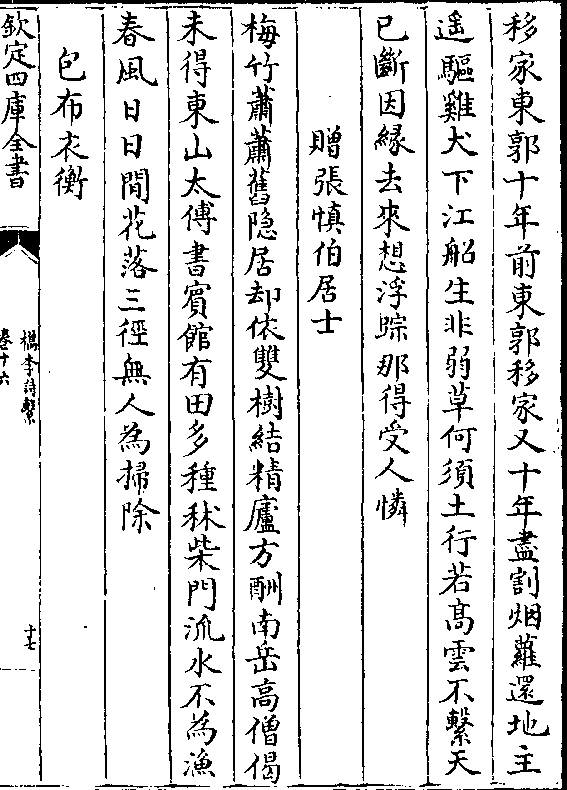 移家東郭十年前東郭移家又十年盡割烟蘿還地主
遥驅雞犬下江船生非弱草何須土行若髙雲不繫天
已斷因縁去來想浮踪那得受人憐
贈張慎伯居士
梅竹蕭蕭舊隐居却依雙樹結精廬方酬南岳高僧偈
未得東山太傅書賓館有田多種秫柴門流水不為漁
春風日日閒花落三徑無人為掃除
包布衣衡
欽定四庫全書
檇李詩繫
卷十六
十七